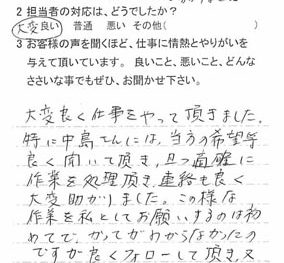 2 担当者の対応は、どうでしたか?
大変良い 普通 悪い その他(
3 お客様の声を聞くほど、仕事に情熱とやりがいを
与えて頂いています。 良いこと、悪いこと、どんな
ささいな事でもぜひ、お聞かせ下さい。
大変良く仕事をやって頂きました。
特に中島さんには、当方の希望等
良く聞いて頂き、且つ
作業を処理頂き、連絡も良く
大変助かりました。この様な
作業を私としてお願いするのは初
めてで、かってがわからなかったの
ですが良くフォローして頂き、又